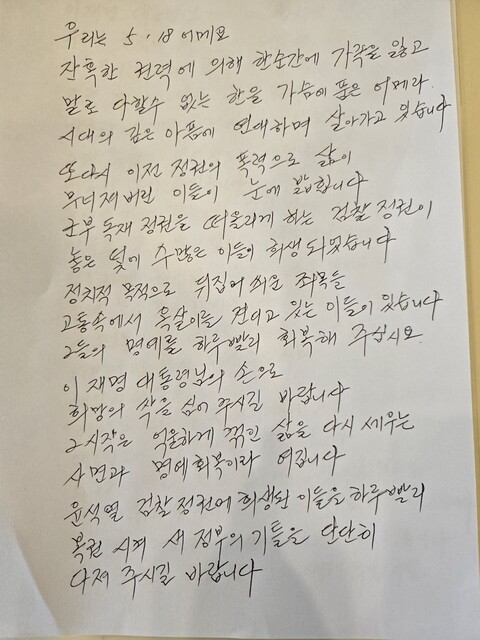 우리는 5·18 어메요
잔혹한 권력에 의해 한순간에 가족을 잃고
말로 다할수 없는 한을 가슴에 품은 어메라
시대의 깊은 아픔에 연대하며 살아가고 있습니다
또다시 이전 정권의 폭력으로 삶이
무너져버린 이들이 눈에 밟힙니다
군부 독재 정권을 떠올리게 하는 검찰 정권이
놓은 덫에 수많은 이들이 희생 되었습니다
정치적 목적으로 뒤집어 씌운 죄목들
고통속에서 옥살이를 견디고 있는 이들이 있습니다
그들의 명예를 하루빨리 회복해 주십시요
이재명 대통령님의 손으로
희망의 싹을 심어 주시길 바랍니다
그시작은 억울하게 꺾인 삶을 다시 세우는
사면과 명예회복이라 여깁니다
윤석열 검찰정권에 희생된 이들을 하루빨리
복권 시켜 새 정부의 기틀을 단단히
다져 주시길 바랍니다